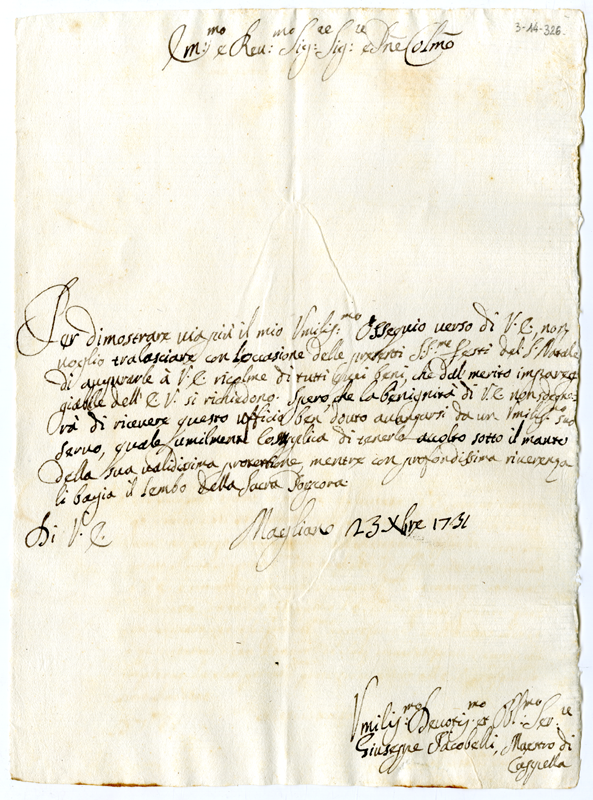 3-14-326.
Em:mo e Reu:mo Sig:re Sig:re e Pne Colmo
Per dimostrare via più il mio Vmilis:mo Ossequio verso di V. E, non
voglio tralasciare con l'occasione delle presenti SS:me Festi del S. Natale
di augurarle à V. E ricolme di tutti quei beni, che dal merito impareg
giabile dell' E V. si richiedono. Spero che la benignità di V. E non sdegne-
rà di ricevere questo ufficio ben douto auanzarsi da un Vmilis:mo suo
servo, quale umilmente la supplica di tenerlo accolto sotto il manto
della sua validissima protettione, mentre con profondissima riuerenza
li bagia il lembo della Sacra Porpora
Di V. E.
Magliano 23 Xbre 1731
Vmilis:mo Deuotis:mo et Obl:mo Ser:re
Giuseppe Jacobelli, Maestro di
Cappella